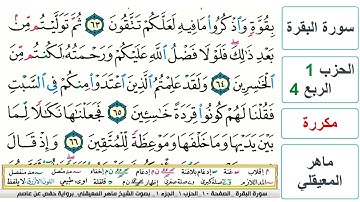 سورة البقرة
الحزب 1
الربع 4
مكررة
ماهر
المعيقلي
بِقُوَّةٍ وَاذْكُرُوا مَا فِيهِ لَعَلَّكُمْ تَتَّقُونَ ٦٣ ثُمَّ تَوَلَّيْتُم مِّن
بَعْدِ ذَٰلِكَ فَلَوْلَا فَضْلُ اللَّهِ عَلَيْكُمْ وَرَحْمَتُهُ لَكُنتُم مِّنَ
الْخَاسِرِينَ ٦٤ وَلَقَدْ عَلِمْتُمُ الَّذِينَ اعْتَدَوْا مِنكُمْ فِي السَّبْتِ
فَقُلْنَا لَهُمْ كُونُوا قِرَدَةً خَاسِئِينَ ٦٥ فَجَعَلْنَاهَا نَكَالًا لِّمَا
بَيْنَ يَدَيْهَا وَمَا خَلْفَهَا وَمَوْعِظَةً لِّلْمُتَّقِينَ ٦٦ وَإِذْ قَالَ
سورة البقرة - الصفحة ١٠ - الحزب ١ - الجزء ١ - بصوت الشيخ ماهر المعيقلي - برواية حفص عن عاصم